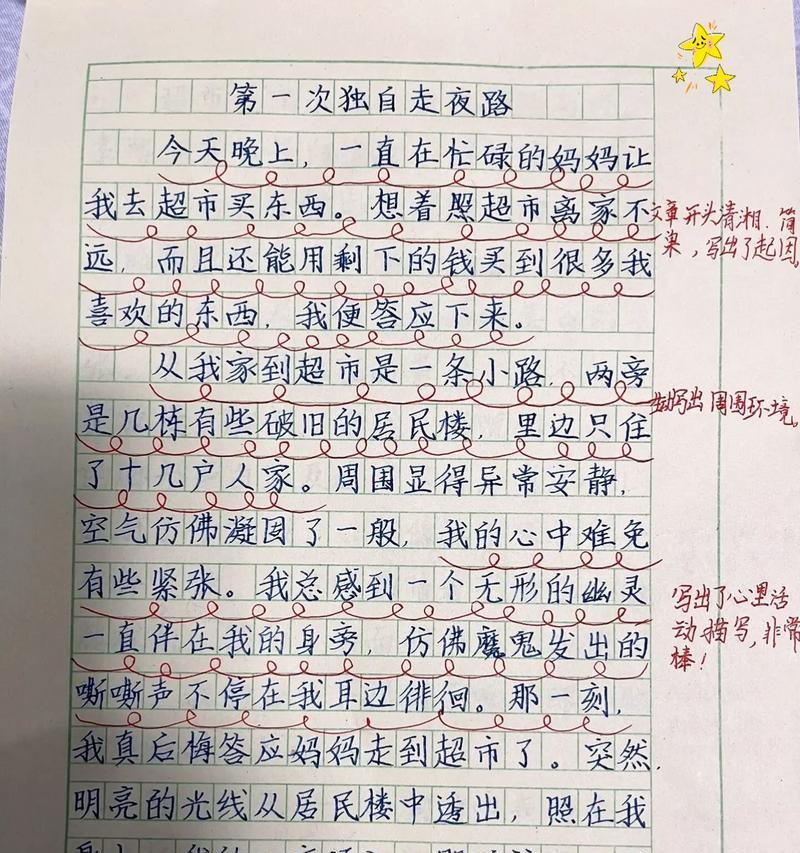 第一次独自走夜路
今天晚上，一直在忙碌的妈妈让
我去超市买东西。想着照超市离家不
远，而且还能用剩下的钱买到很多我
喜欢的东西，我便答应下来。
从我家到超市是一条小路，两旁
是几栋有些破旧的居民楼，里边只住
了十几户人家。周围显得异常安静，
空气仿佛凝固了一般，我的心中难免
有些紧张。我总感到一个无形的幽灵
一直伴在我的身旁，仿佛魔鬼发出的
嘶嘶声不停在我耳边徘徊。那一刻，
我真后悔答应妈妈走到超市了。突然，
明亮的光线从居民楼中透出，照在我
文章开头清湘，简
洁，写出了起因。
生动写出周围环境。
写出了心里活
动描写，非常
棒！